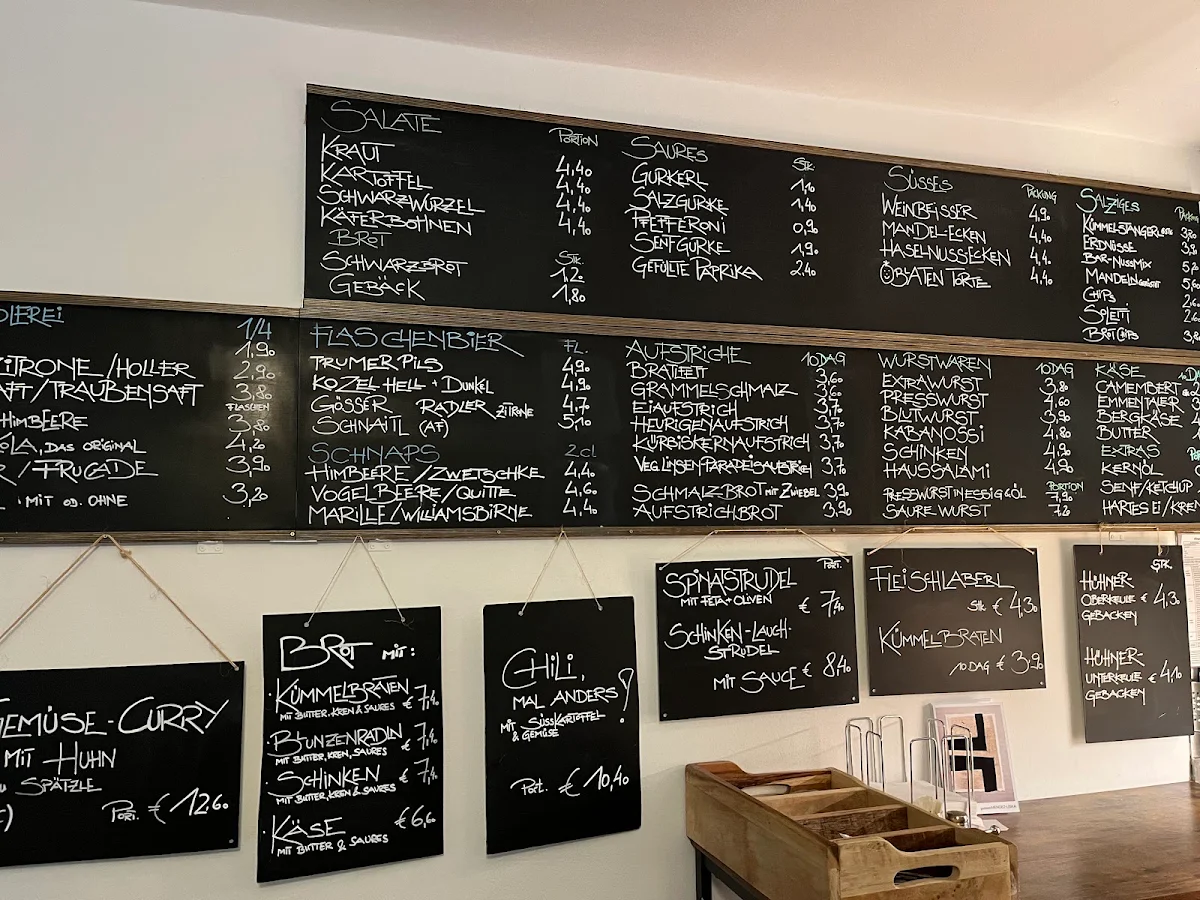 SALATE PORTION
KRAUT 4,40
KARTOFFEL 4,40
SCHWARZWURZEL 4,40
KÄFERBOHNEN 4,40
BROT Stk.
SCHWARZBROT 1,20
GEBÄCK 1,80
SAURES Stk.
GURKERL 1,10
SALZGURKE 1,40
PFEFFERONI 0,90
SENFGURKE 1,90
GEFÜLLTE PAPRIKA 2,40
SÜSSES PACKUNG
WEINBEISSER 4,90
MANDEL-ECKEN 4,40
HASELNUSSECKEN 4,40
OBLATEN TORTE 4,40
SALZIGES
KÜMMELSTANGERL
ERDNÜSSE
BAR-NUSSMIX
MANDELN
CHIPS
SOLETTI
BROTCHIPS
1/4
ITRONE/HOLLER 1,90
AFT/TRAUBENSAFT 2,90
3,80
FLASCHEN
HIMBEERE 3,80
LA, DAS ORIGINAL 4,20
/FRUCADE 3,90
. MIT OD. OHNE 3,20
FLASCHENBIER FL.
TRUMER PILS 4,90
KOZEL HELL + DUNKEL 4,90
GÖSSER RADLER ZITRONE 4,70
SCHNAITL (AF) 5,10
SCHNAPS 2cl
HIMBEERE/ZWETSCHKE 4,40
VOGELBEERE/QUITTE 4,60
MARILLE/WILLIAMSBIRNE 4,40
AUFSTRICHE 10DAG
BRATLFETT 3,60
GRAMMELSCHMALZ 3,60
EIAUFSTRICH 3,70
HEURIGENAUFSTRICH 3,70
KÜRBISKERNAUFSTRICH 3,70
VEG. LINSEN PARADEISAUFSTRICH 3,70
SCHMALZBROT MIT ZWIEBEL 3,90
AUFSTRICHBROT 3,90
WURSTWAREN 10DAG
EXTRAWURST 3,80
PRESSWURST 4,60
BLUTWURST 3,90
KABANOSSI 4,80
SCHINKEN 4,90
HAUSSALAMI 4,90
PORTION
PRESSWURST IN ESSIG & ÖL 7,90
SAURE WURST 7,20
KÄSE
CAMEMBERT
EMMENTALER
BERGKÄSE
BUTTER
EXTRAS
KERNÖL
SENF/KETCHUP
HARTES EI/KREN
GEMÜSE-CURRY
MIT HUHN
SPÄTZLE
Port. € 12,60
BROT MIT:
· KÜMMELBRATEN € 7,40
MIT BUTTER, KREN & SAURES
· BLUNZENRADLN € 7,40
MIT BUTTER, KREN, SAURES
· SCHINKEN € 7,40
MIT BUTTER, KREN & SAURES
· KÄSE € 6,60
MIT BUTTER & SAURES
CHILI,
MAL ANDERS!
MIT SÜSSKARTOFFEL
& GEMÜSE
Port. € 10,40
Port.
SPINATSTRUDEL
MIT FETA + OLIVEN € 7,40
SCHINKEN-LAUCH-
STRUDEL
MIT SAUCE € 8,40
FLEISCHLABERL
Stk € 4,30
KÜMMELBRATEN
10 DAG € 3,90
STK.
HÜHNER-
OBERKEULE € 4,30
GEBACKEN
HÜHNER-
UNTERKEULE € 4,10
GEBACKEN